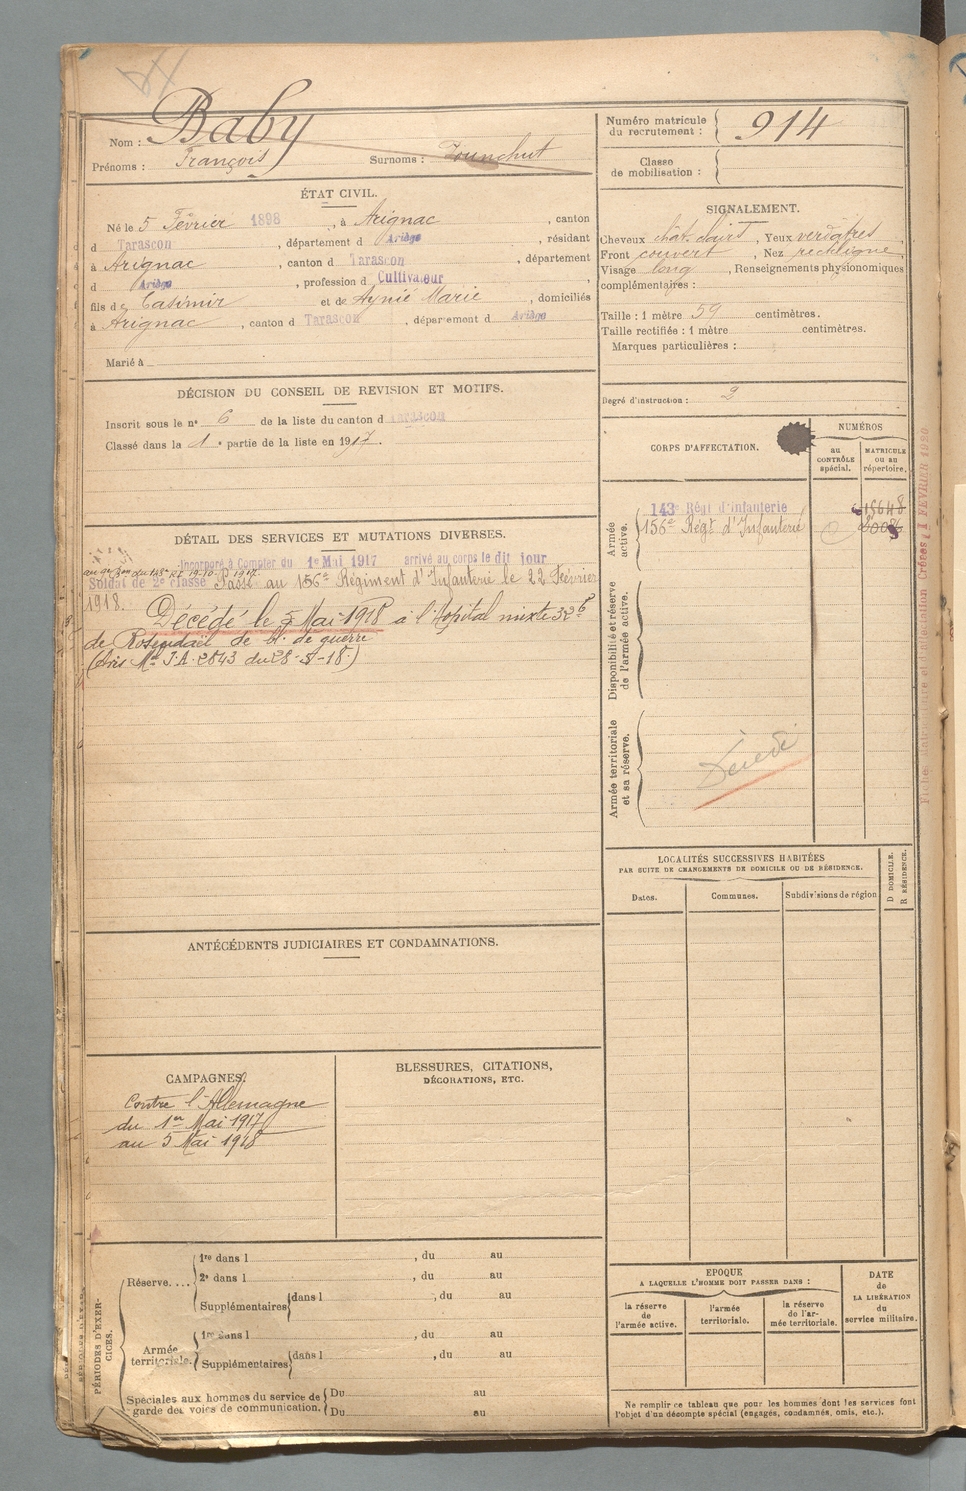 Nom : Baby
Prénoms : François Surnoms :
Numéro matricule du recrutement : 914
Classe de mobilisation :
ÉTAT CIVIL.
Né le 5 Février 1898, à Arignac, canton
d Tarascon, département d Ariège, résidant
à Arignac, canton d Tarascon, département
d Ariège, profession d Cultivateur
fils de Casimir et de Aynié Marie, domiciliés
à Arignac, canton d Tarascon, département d Ariège
Marié à
SIGNALEMENT.
Cheveux chât. clairs, Yeux verdâtres,
Front couvert, Nez rectiligne,
Visage long, Renseignements physionomiques
complémentaires :
Taille : 1 mètre 59 centimètres.
Taille rectifiée : 1 mètre centimètres.
Marques particulières :
Degré d'instruction : 2
DÉCISION DU CONSEIL DE REVISION ET MOTIFS.
Inscrit sous le n° 6 de la liste du canton d Tarascon
Classé dans la 1e partie de la liste en 1917.
CORPS D'AFFECTATION.
NUMÉROS
au CONTRÔLE spécial.
MATRICULE ou au répertoire.
Armée active.
143e Régt d'infanterie 15648
156e Régt d'Infanterie
Disponibilité et réserve de l'armée active.
Armée territoriale et sa réserve.
Décédé
DÉTAIL DES SERVICES ET MUTATIONS DIVERSES.
Incorporé à Compter du 1er Mai 1917 arrivé au corps le dit jour
Soldat de 2e classe Passé au 156e Régiment d'Infanterie le 22 Février
1918. Décédé le 5 Mai 1918 à l'Hôpital mixte
de Rosendaël de bl. de guerre
(Avis Mel J.A. 2843 du 28-5-18.)
LOCALITÉS SUCCESSIVES HABITÉES
PAR SUITE DE CHANGEMENTS DE DOMICILE OU DE RÉSIDENCE.
Dates. Communes. Subdivisions de région
D DOMICILE.
R RÉSIDENCE.
ANTÉCÉDENTS JUDICIAIRES ET CONDAMNATIONS.
CAMPAGNES.
Contre l'Allemagne
du 1er Mai 1917
au 5 Mai 1918
BLESSURES, CITATIONS,
DÉCORATIONS, ETC.
PÉRIODES D'EXERCICES.
Réserve....
1re dans l , du au
2e dans l , du au
Supplémentaires dans l , du au
Armée territoriale.
1re dans l , du au
Supplémentaires dans l , du au
Spéciales aux hommes du service de
garde des voies de communication.
Du au
Du au
EPOQUE
A LAQUELLE L'HOMME DOIT PASSER DANS :
la réserve de l'armée active.
l'armée territoriale.
la réserve de l'armée territoriale.
DATE de LA LIBÉRATION du service militaire.
Ne remplir ce tableau que pour les hommes dont les services font
l'objet d'un décompte spécial (engagés, condamnés, omis, etc.).